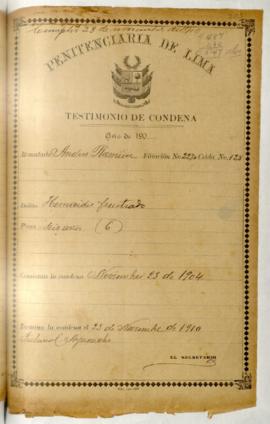 Cumplió 23 de noviembre de 1910
PENITENCIARIA DE LIMA
TESTIMONIO DE CONDENA
de 190
Rematado Andres Filiación No. 223 Celda No. 123
Delito Homicidio frustrado
Pena seis años (6)
Comienza la condena el Noviembre 23 de 1904
Termina la condena el 23 de Noviembre de 1910
EL SECRETARIO